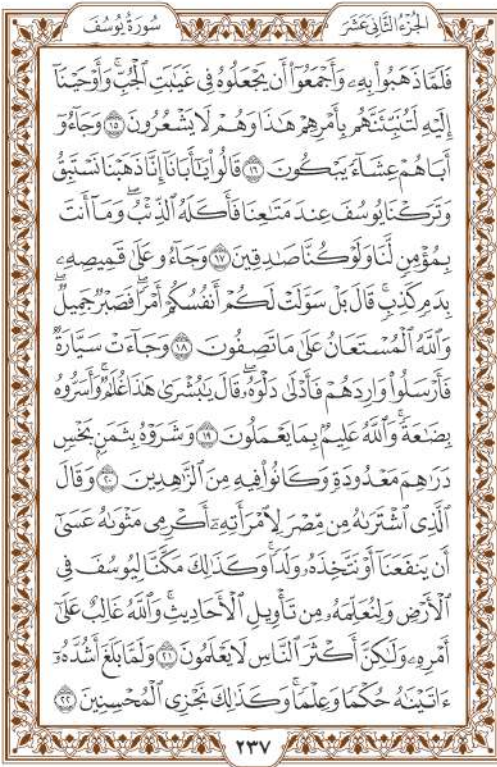 الجُزءُ الثَّانِي عَشَرَ
سُورَةُ يُوسُفَ
فَلَمَّا ذَهَبُوا۟ بِهِۦ وَأَجْمَعُوٓا۟ أَن يَجْعَلُوهُ فِى غَيَـٰبَتِ ٱلْجُبِّ ۚ وَأَوْحَيْنَآ
إِلَيْهِ لَتُنَبِّئَنَّهُم بِأَمْرِهِمْ هَـٰذَا وَهُمْ لَا يَشْعُرُونَ ١٥ وَجَآءُوٓ
أَبَاهُمْ عِشَآءً يَبْكُونَ ١٦ قَالُوا۟ يَـٰٓأَبَانَآ إِنَّا ذَهَبْنَا نَسْتَبِقُ
وَتَرَكْنَا يُوسُفَ عِندَ مَتَـٰعِنَا فَأَكَلَهُ ٱلذِّئْبُ ۖ وَمَآ أَنتَ
بِمُؤْمِنٍ لَّنَا وَلَوْ كُنَّا صَـٰدِقِينَ ١٧ وَجَآءُو عَلَىٰ قَمِيصِهِۦ
بِدَمٍ كَذِبٍ ۚ قَالَ بَلْ سَوَّلَتْ لَكُمْ أَنفُسُكُمْ أَمْرًا ۖ فَصَبْرٌ جَمِيلٌ ۖ
وَٱللَّهُ ٱلْمُسْتَعَانُ عَلَىٰ مَا تَصِفُونَ ١٨ وَجَآءَتْ سَيَّارَةٌ
فَأَرْسَلُوا۟ وَارِدَهُمْ فَأَدْلَىٰ دَلْوَهُۥ ۖ قَالَ يَـٰبُشْرَىٰ هَـٰذَا غُلَـٰمٌ ۚ وَأَسَرُّوهُ
بِضَـٰعَةً ۚ وَٱللَّهُ عَلِيمٌۢ بِمَا يَعْمَلُونَ ١٩ وَشَرَوْهُ بِثَمَنٍۭ بَخْسٍ
دَرَٰهِمَ مَعْدُودَةٍ وَكَانُوا۟ فِيهِ مِنَ ٱلزَّٰهِدِينَ ٢٠ وَقَالَ
ٱلَّذِى ٱشْتَرَىٰهُ مِن مِّصْرَ لِٱمْرَأَتِهِۦٓ أَكْرِمِى مَثْوَىٰهُ عَسَىٰٓ
أَن يَنفَعَنَآ أَوْ نَتَّخِذَهُۥ وَلَدًا ۚ وَكَذَٰلِكَ مَكَّنَّا لِيُوسُفَ فِى
ٱلْأَرْضِ وَلِنُعَلِّمَهُۥ مِن تَأْوِيلِ ٱلْأَحَادِيثِ ۚ وَٱللَّهُ غَالِبٌ عَلَىٰٓ
أَمْرِهِۦ وَلَـٰكِنَّ أَكْثَرَ ٱلنَّاسِ لَا يَعْلَمُونَ ٢١ وَلَمَّا بَلَغَ أَشُدَّهُۥٓ
ءَاتَيْنَـٰهُ حُكْمًا وَعِلْمًا ۚ وَكَذَٰلِكَ نَجْزِى ٱلْمُحْسِنِينَ ٢٢
٢٣٧